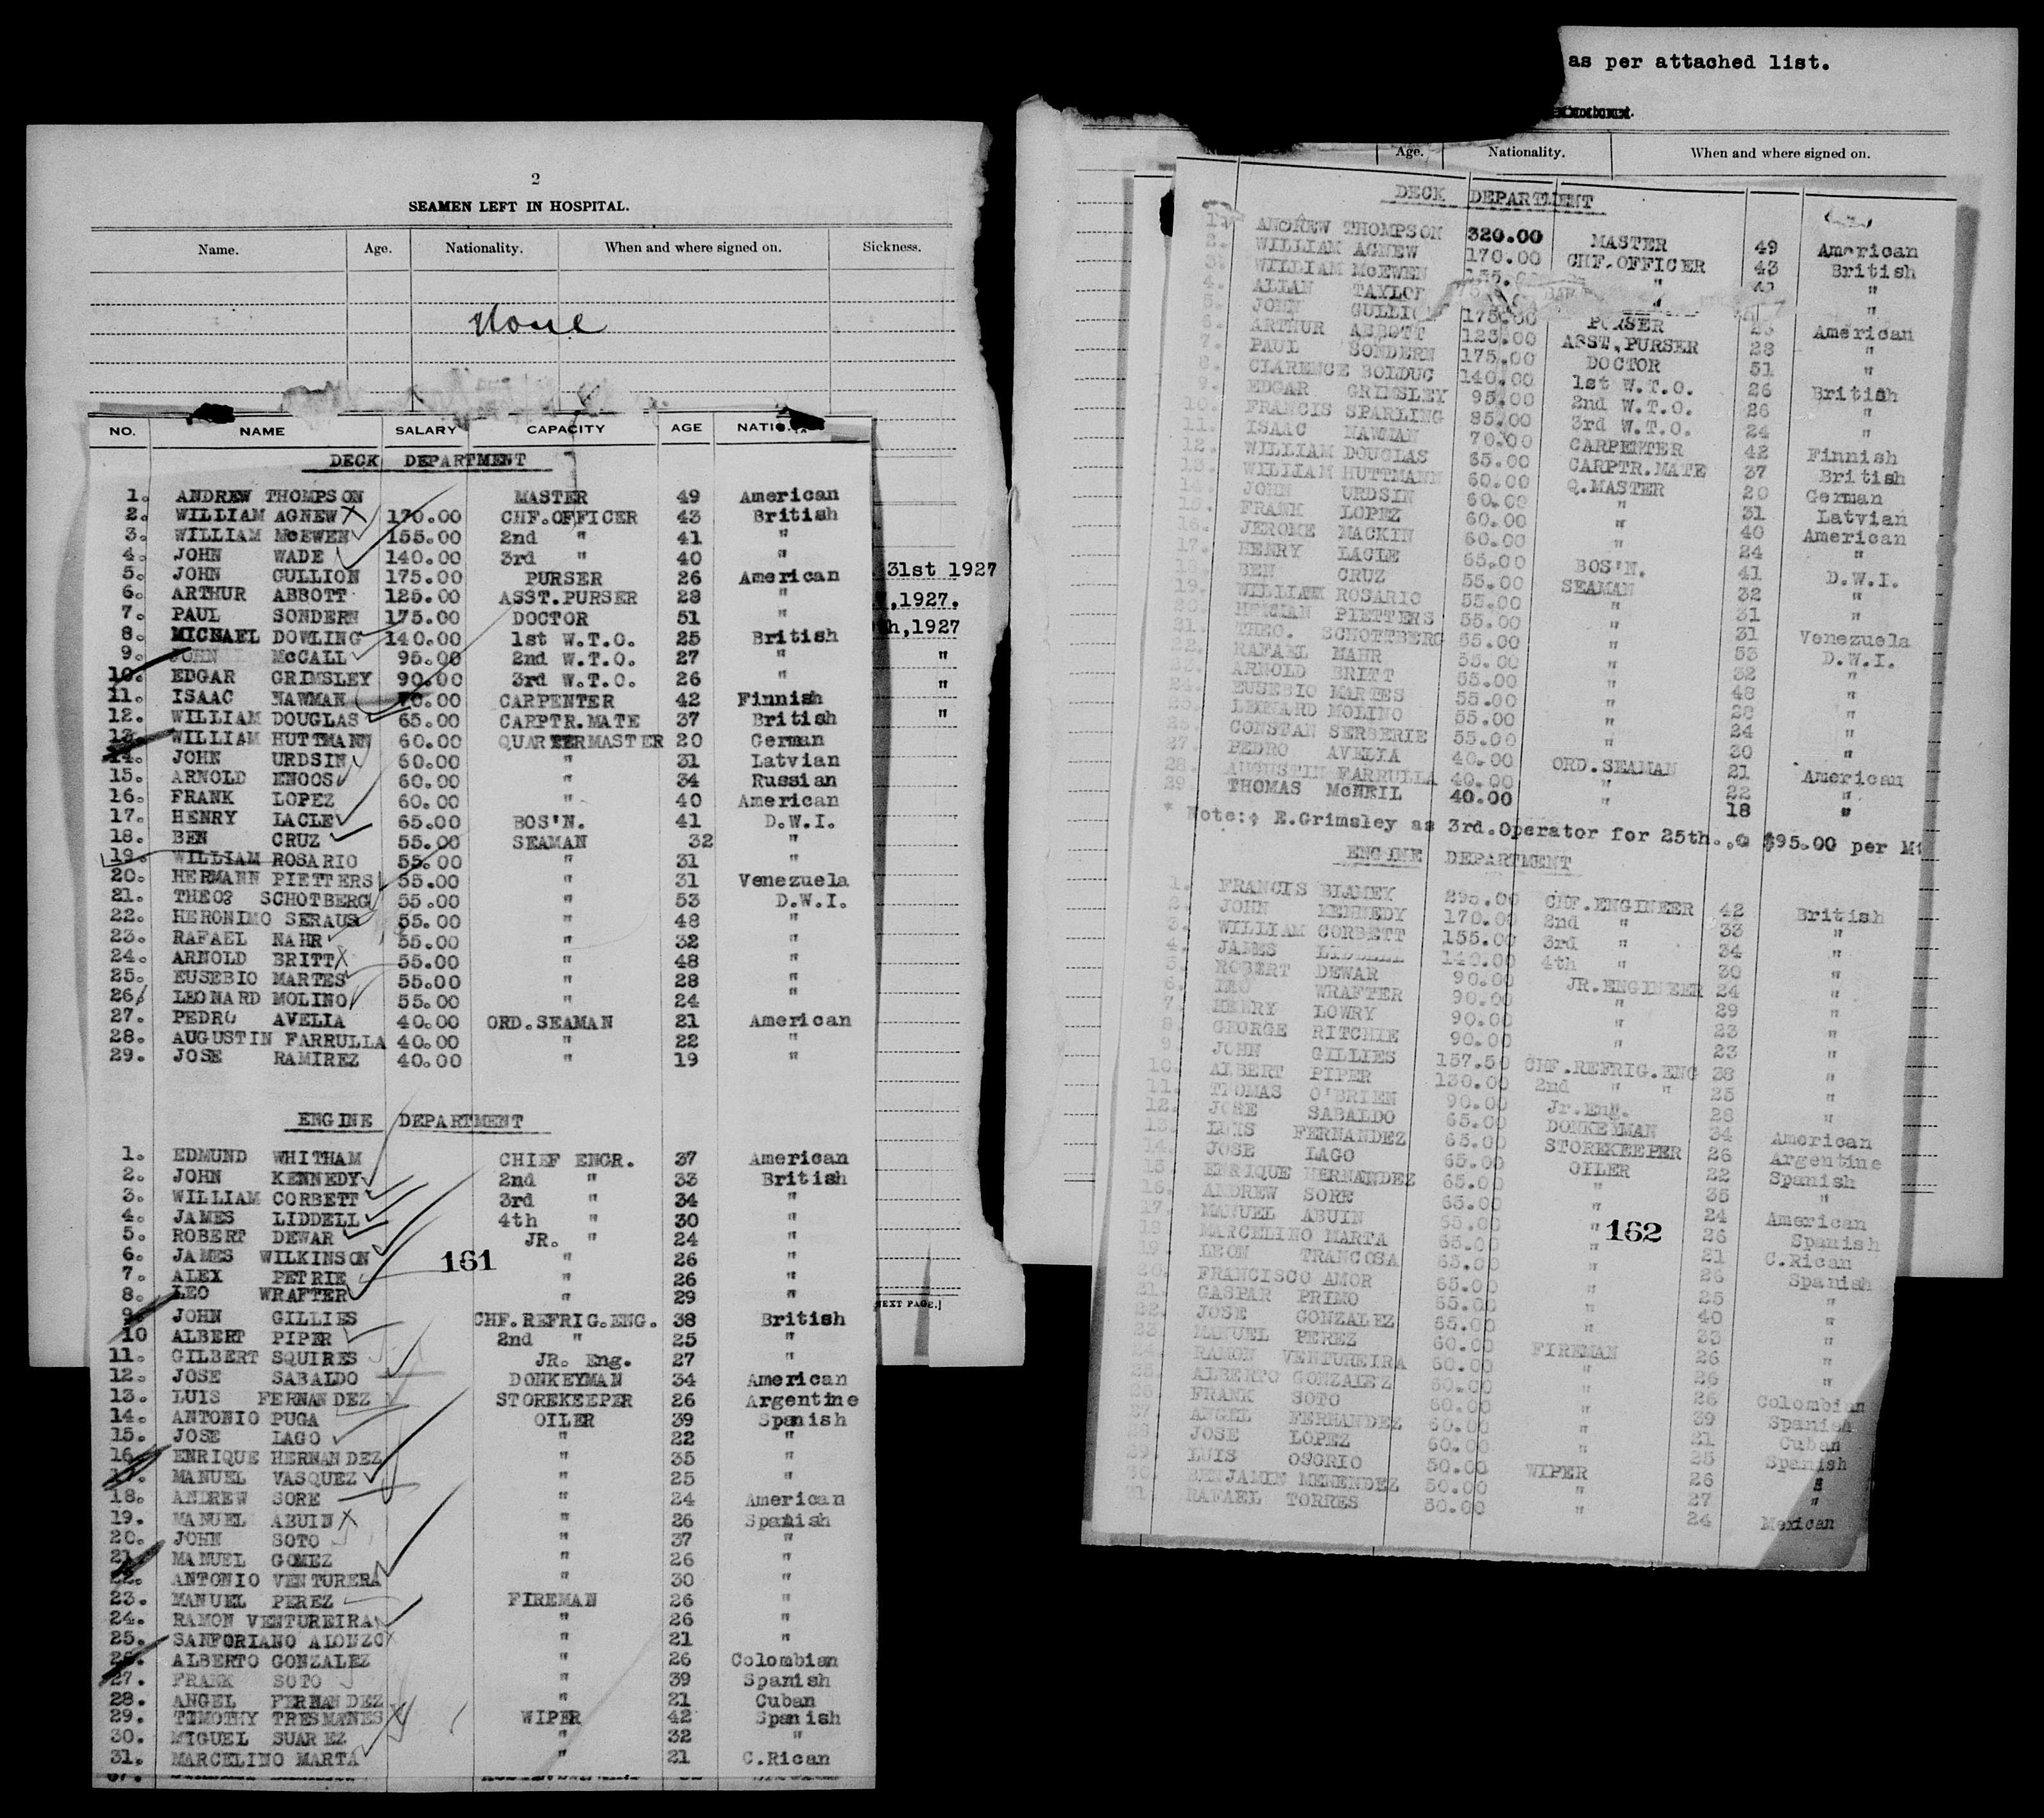 2
SEAMEN LEFT IN HOSPITAL.
Name. Age. Nationality. When and where signed on. Sickness.
None
31st 1927
,1927.
h,1927
"
"
"
NEXT PAGE.]
NO. NAME SALARY CAPACITY AGE
DECK DEPARTMENT
1. ANDREW THOMPSON MASTER 49 American
2. WILLIAM AGNEW X 170.00 CHF.OFFICER 43 British
3. WILLIAM McEWEN 155.00 2nd " 41 "
4. JOHN WADE 140.00 3rd " 40 "
5. JOHN GULLION 175.00 PURSER 26 American
6. ARTHUR ABBOTT 125.00 ASST.PURSER 28 "
7. PAUL SONDERN 175.00 DOCTOR 51 "
8. MICHAEL DOWLING 140.00 1st W.T.O. 25 British
9. JOHN McCALL 95.00 2nd W.T.O. 27 "
10. EDGAR GRIMSLEY 90.00 3rd W.T.O. 26 "
11. ISAAC NAWMAN 70.00 CARPENTER 42 Finnish
12. WILLIAM DOUGLAS 65.00 CARPTR.MATE 37 British
13. WILLIAM HUTTMANN 60.00 QUARTERMASTER 20 German
14. JOHN URDSIN 60.00 " 31 Latvian
15. ARNOLD ENOOS 60.00 " 34 Russian
16. FRANK LOPEZ 60.00 " 40 American
17. HENRY LACLE 65.00 BOS'N. 41 D.W.I.
18. BEN CRUZ 55.00 SEAMAN 32 "
19. WILLIAM ROSARIO 55.00 " 31 "
20. HERMANN PIETTERS 55.00 " 31 Venezuela
21. THEO? SCHOTBERG 55.00 " 53 D.W.I.
22. HERONIMO SERAUS 55.00 " 48 "
23. RAFAEL NAHR 55.00 " 32 "
24. ARNOLD BRITT X 55.00 " 48 "
25. EUSEBIO MARTES 55.00 " 28 "
26. LEONARD MOLINO 55.00 " 24 "
27. PEDRO AVELIA 40.00 ORD.SEAMAN 21 American
28. AUGUSTIN FARRULLA 40.00 " 22 "
29. JOSE RAMIREZ 40.00 " 19 "
ENGINE DEPARTMENT
1. EDMUND WHITHAM CHIEF ENGR. 37 American
2. JOHN KENNEDY 2nd " 33 British
3. WILLIAM CORBETT 3rd " 34 "
4. JAMES LIDDELL 4th " 30 "
5. ROBERT DEWAR JR. " 24 "
6. JAMES WILKINSON " 26 "
161
7. ALEX PETRIE " 26 "
8. LEO WRAFTER " 29 "
9. JOHN GILLIES CHF.REFRIG.ENG. 38 British
10 ALBERT PIPER 2nd " 25 "
11. GILBERT SQUIRES JR. Eng. 27 "
12. JOSE SABALDO DONKEYMAN 34 American
13. LUIS FERNANDEZ STOREKEEPER 26 Argentine
14. ANTONIO PUGA OILER 39 Spanish
15. JOSE LAGO " 22 "
16. ENRIQUE HERNANDEZ " 35 "
17. MANUEL VASQUEZ " 25 "
18. ANDREW SORE " 24 American
19. MANUEL ABUIN X " 26 Spanish
20. JOHN SOTO " 37 "
21. MANUEL GOMEZ " 26 "
22. ANTONIO VENTURERA " 30 "
23. MANUEL PEREZ FIREMAN 26 "
24. RAMON VENTUREIRA " 26 "
25. SANFORIANO ALONZO " 21 "
26. ALBERTO GONZALEZ " 26 Colombian
27. FRANK SOTO " 39 Spanish
28. ANGEL FERNANDEZ " 21 Cuban
29. TIMOTHY TRESMANES X WIPER 42 Spanish
30. MIGUEL SUAREZ " 32 "
31. MARCELINO MARTA " 21 C.Rican
as per attached list.
Age. Nationality. When and where signed on.
DECK DEPARTMENT
1. ANDREW THOMPSON 320.00 MASTER 49 American
2. WILLIAM AGNEW 170.00 CHF.OFFICER 43 British
3. WILLIAM McEWEN 155.00 " 41 "
4. ALLAN TAYLOR "
5. JOHN GULLION 175.00 PURSER 26 American
6. ARTHUR ABBOTT 125.00 ASST.PURSER 28 "
7. PAUL SONDERN 175.00 DOCTOR 51 "
8. CLARENCE BOLDUC 140.00 1st W.T.O. 26 British
9. EDGAR GRIMSLEY 95.00 2nd W.T.O. 26 "
10. FRANCIS SPARLING 85.00 3rd W.T.O. 24 "
11. ISAAC NAWMAN 70.00 CARPENTER 42 Finnish
12. WILLIAM DOUGLAS 65.00 CARPTR.MATE 37 British
13. WILLIAM HUTTMANN 60.00 Q.MASTER 20 German
14. JOHN URDSIN 60.00 " 31 Latvian
15. FRANK LOPEZ 60.00 " 40 American
16. JEROME MACKIN 60.00 " 24 "
17. HENRY LACLE 65.00 BOS'N. 41 D.W.I.
18. BEN CRUZ 55.00 SEAMAN 32 "
19. WILLIAM ROSARIO 55.00 " 31 "
20. HERMAN PIETTERS 55.00 " 31 Venezuela
21. THEO. SCHOTTBERG 55.00 " 53 D.W.I.
22. RAFAEL NAHR 55.00 " 32 "
23. ARNOLD BRITT 55.00 " 48 "
24. EUSEBIO MARTES 55.00 " 28 "
25. LEONARD MOLINO 55.00 " 24 "
26. CONSTAN SERSERIE 55.00 " 30 "
27. PEDRO AVELIA 40.00 ORD.SEAMAN 21 American
28. AUGUSTIN FARRULLA 40.00 " 22 "
29. THOMAS McNEIL 40.00 " 18 "
* Note: E.Grimsley as 3rd.Operator for 25th..@ $95.00 per
ENGINE DEPARTMENT
1. FRANCIS BLAMEY 295.00 CHF.ENGINEER 42 British
2. JOHN KENNEDY 170.00 2nd " 33 "
3. WILLIAM CORBETT 155.00 3rd " 34 "
4. JAMES LIDDELL 140.00 4th " 30 "
5. ROBERT DEWAR 90.00 JR.ENGINEER 24 "
6. LEO WRAFTER 90.00 " 29 "
7. HENRY LOWRY 90.00 " 23 "
8. GEORGE RITCHIE 90.00 " 23 "
9. JOHN GILLIES 157.50 CHF.REFRIG.ENG 38 "
10. ALBERT PIPER 130.00 2nd " " 25 "
11. THOMAS O'BRIEN 90.00 Jr.Eng. 28 "
12. JOSE SABALDO 65.00 DONKEYMAN 34 American
13. LUIS FERNANDEZ 65.00 STOREKEEPER 26 Argentine
14. JOSE LAGO 65.00 OILER 22 Spanish
15. ENRIQUE HERNANDEZ 65.00 " 35 "
16. ANDREW SORE 65.00 " 24 American
17. MANUEL ABUIN 65.00 " 26 Spanish
162
18. MARCELINO MARTA 65.00 " 21 C.Rican
19. LEON TRANCOSA 65.00 " 26 Spanish
20. FRANCISCO AMOR 65.00 " 25 "
21. GASPAR PRIMO 65.00 " 40 "
22. JOSE GONZALEZ 65.00 " 33 "
23. MANUEL PEREZ 60.00 FIREMAN 26 "
24. RAMON VENTUREIRA 60.00 " 26 "
25. ALBERTO GONZALEZ 60.00 " 26 Colombian
26. FRANK SOTO 60.00 " 39 Spanish
27 ANGEL FERNANDEZ 60.00 " 21 Cuban
28 JOSE LOPEZ 60.00 " 25 Spanish
29. LUIS OSORIO 50.00 WIPER 26 "
30. BENJAMIN MENENDEZ 50.00 " 27 "
31 RAFAEL TORRES 50.00 " 24 Mexican